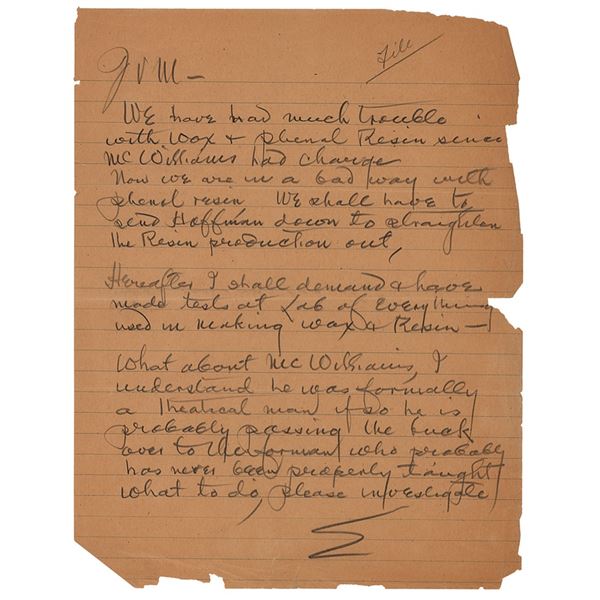 File
J V M —
We have had much trouble
with Wax & phenol Resin since
McWilliams had charge
Now we are in a bad way with
phenol resin, We shall have to
send Hoffman down to straighten
the Resin production out,
Hereafter I shall demand & have
made tests at Lab of Everything
used in making wax & Resin —
What about McWilliams, I
understand he was formally
a Theatical man if so he is
probably passing the buck
over to the forman who probably
has never been properly taught
what to do, please investigate
E